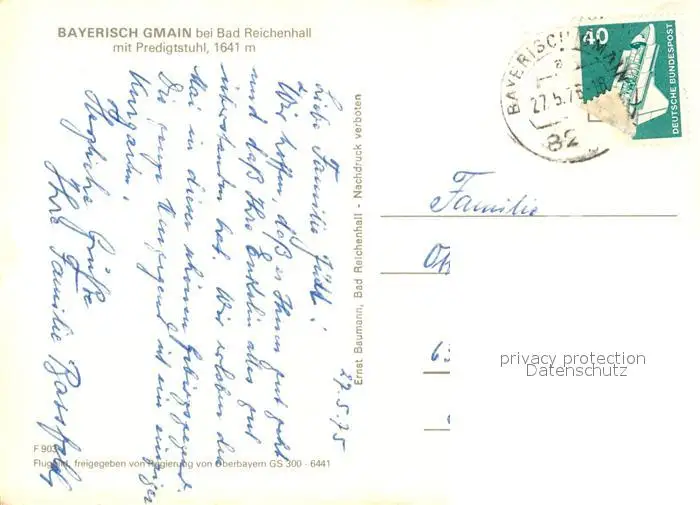 BAYERISCH GMAIN bei Bad Reichenhall
mit Predigtstuhl, 1641 m
27.5.75
Liebe Familie !
Wir hoffen, daß es Ihnen gut geht
und daß Ihre Enkelin alles gut
überstanden hat. Wir erleben den
Mai in dieser schönen Gebirgsgegend.
Die ganze Umgegend ist ein einziger
Kurgarten.
Herzliche Grüße
Ihre Familie
Ernst Baumann, Bad Reichenhall - Nachdruck verboten
F 903
Flugbild, freigegeben von Regierung von Oberbayern GS 300 - 6441
BAYERISCH GMAIN
a
27.5.75-18
82
40
DEUTSCHE BUNDESPOST
Familie
privacy protection
Datenschutz